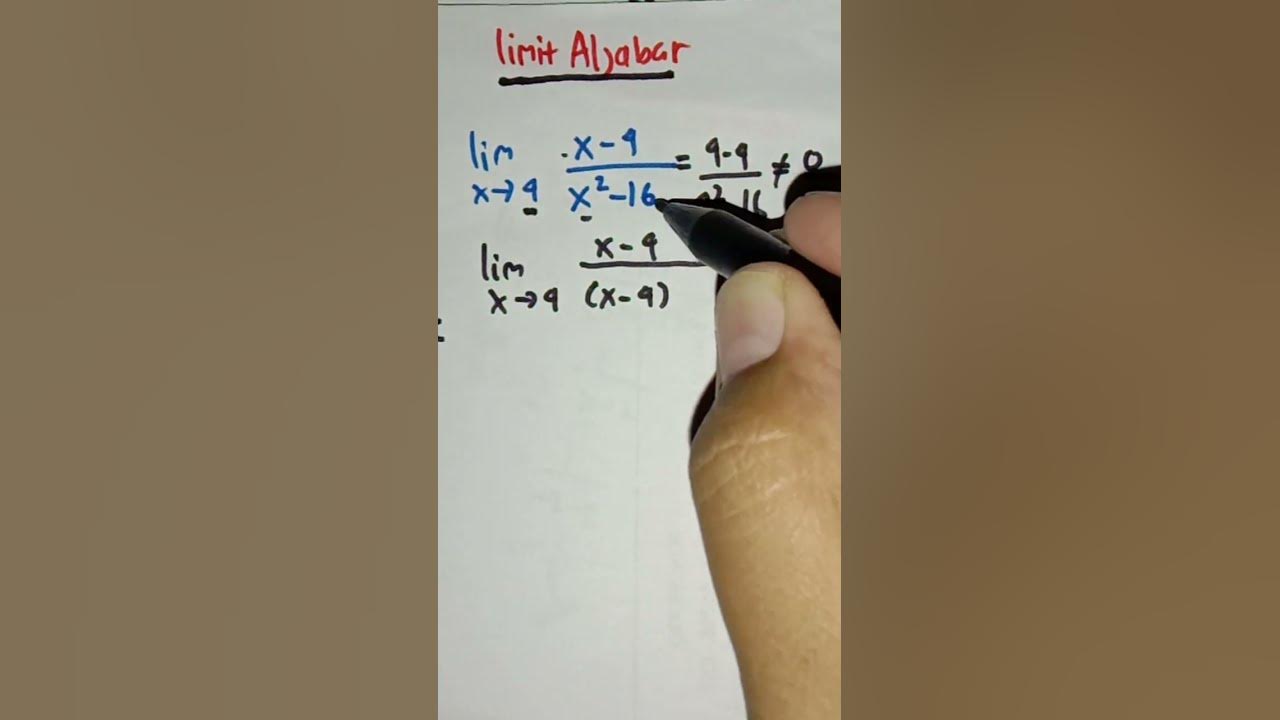 limit Aljabar
lim x→4 x-4 / x²-16 = 4-4 / 4²-16 ≠ 0
lim x→4 x-4 / (x-4)